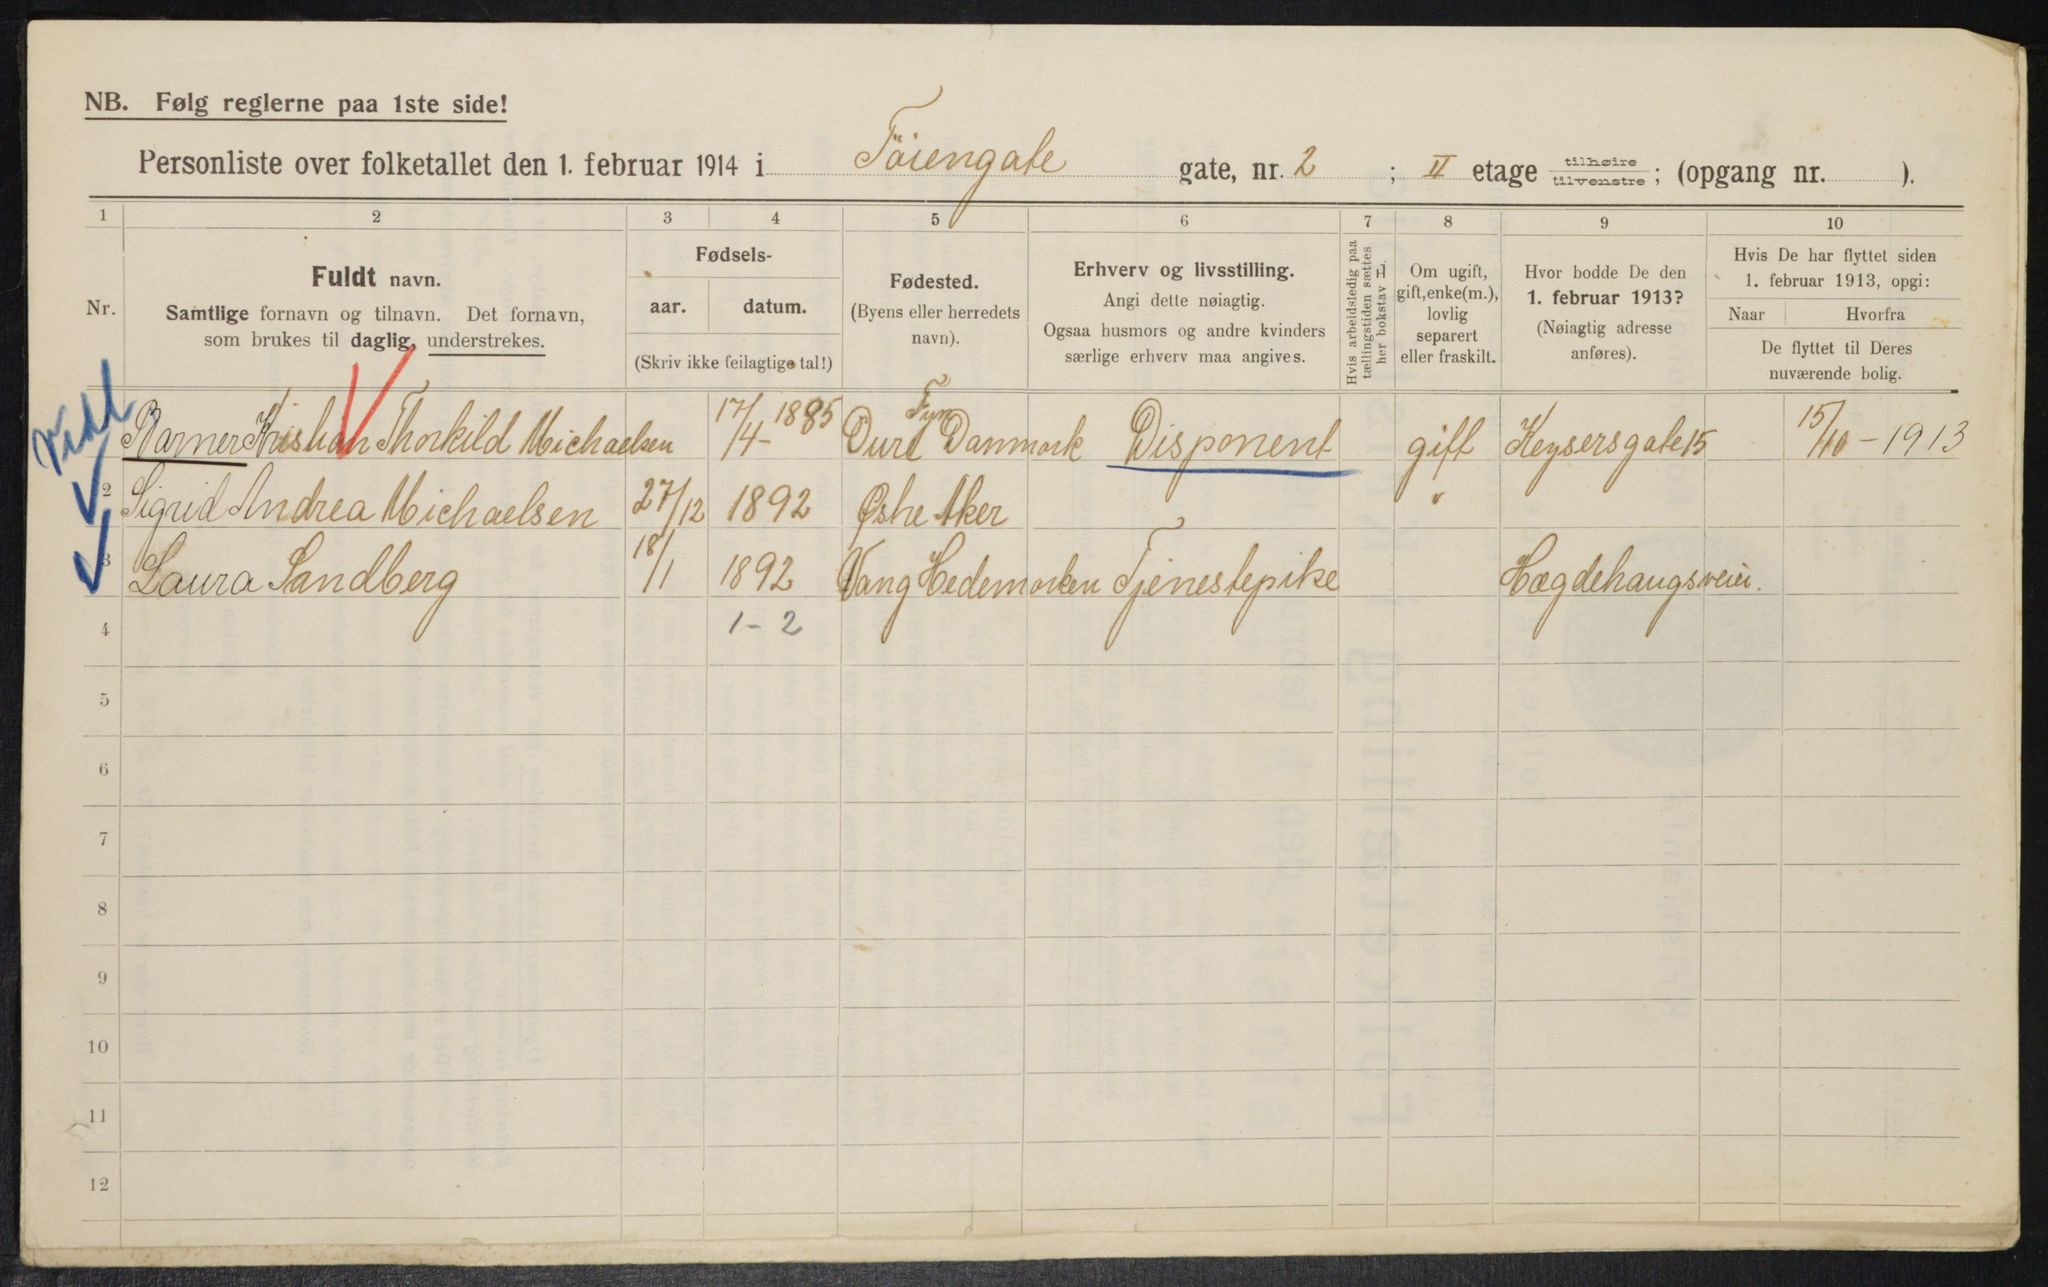 NB. Følg reglerne paa 1ste side!
Personliste over folketallet den 1. februar 1914 i Töiengate gate, nr. 2 ; II etage tilhøire / tilvenstre ; (opgang nr. ).
1 2 3 4 5 6 7 8 9 10
Nr.
Fuldt navn.
Samtlige fornavn og tilnavn. Det fornavn,
som brukes til daglig, understrekes.
Fødsels-
aar. datum.
(Skriv ikke feilagtige tal!)
Fødested.
(Byens eller herredets
navn).
Erhverv og livsstilling.
Angi dette nøiagtig.
Ogsaa husmors og andre kvinders
særlige erhverv maa angives.
Hvis arbeidsledig paa
tællingstiden sættes
her bokstav
Om ugift,
gift, enke(m.),
lovlig
separert
eller fraskilt.
Hvor bodde De den
1. februar 1913?
(Nøiagtig adresse
anføres).
Hvis De har flyttet siden
1. februar 1913, opgi:
Naar Hvorfra
De flyttet til Deres
nuværende bolig.
Barner Kristian Thorkild Michaelsen 17/4- 1885 Fyn Danmark Disponent gift Keysersgate 15 15/10 - 1913
2 Sigrid Andrea Michaelsen 27/12 1892 Aker "
3 Laura Sandberg 18/1 1892 Vang Hedemarken Tjenestepike Hægdehaugsveien.
4 1-2
5
6
7
8
9
10
11
12